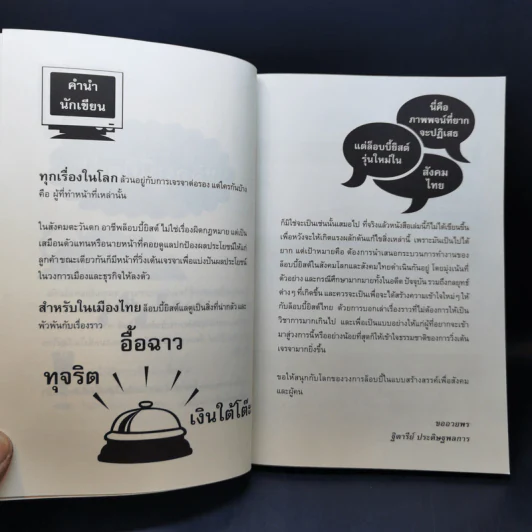 คำนำ
นักเขียน
ทุกเรื่องในโลก ล้วนอยู่กับการเจรจาต่อรอง แต่ใครกันบ้าง
คือ ผู้ที่ทำหน้าที่เหล่านั้น
ในสังคมตะวันตก อาชีพล็อบบี้ยิสต์ ไม่ใช่เรื่องผิดกฎหมาย แต่เป็น
เสมือนตัวแทนหรือนายหน้าที่คอยดูแลปกป้องผลประโยชน์ให้แก่
ลูกค้า ขณะเดียวกันก็มีหน้าที่วิ่งเต้นเจรจาเพื่อแบ่งปันผลประโยชน์
ในวงการเมืองและธุรกิจให้ลงตัว
สำหรับในเมืองไทย ล็อบบี้ยิสต์แลดูเป็นสิ่งที่น่ากลัว และ
พัวพันกับเรื่องราว
อื้อฉาว
ทุจริต
เงินใต้โต๊ะ
นี่คือ
ภาพพจน์ที่ยาก
จะปฏิเสธ
แต่ล็อบบี้ยิสต์
รุ่นใหม่ใน
สังคม
ไทย
ก็มิใช่จะเป็นเช่นนั้นเสมอไป ที่จริงแล้วหนังสือเล่มนี้ก็ไม่ได้เขียนขึ้น
เพื่อหวังจะให้เกิดแรงผลักดันแก้ไขสิ่งเหล่านี้ เพราะมันเป็นไปได้
ยาก แต่เป้าหมายคือ ต้องการนำเสนอกระบวนการทำงานของ
ล็อบบี้ยิสต์ในสังคมโลกและสังคมไทยดำเนินกันอยู่ โดยมุ่งเน้นที่
ตัวอย่าง และกรณีศึกษามากมายทั้งในอดีต ปัจจุบัน รวมถึงกลยุทธ์
ต่างๆ ที่เกิดขึ้น และควรจะเป็นเพื่อจะได้สร้างความเข้าใจใหม่ๆ ให้
กับล็อบบี้ยิสต์ไทย ด้วยการบอกเล่าเรื่องราวที่ไม่ต้องการให้เป็น
วิชาการมากเกินไป และเพื่อเป็นแบบอย่างให้แก่ผู้ที่อยากจะเข้า
มาสู่วงการนี้หรืออย่างน้อยที่สุดก็ให้เข้าใจธรรมชาติของการวิ่งเต้น
เจรจามากยิ่งขึ้น
ขอให้สนุกกับโลกของวงการล็อบบี้ในแบบสร้างสรรค์เพื่อสังคม
และผู้คน
ขออวยพร
ฐิตารีย์ ประดิษฐพลการ